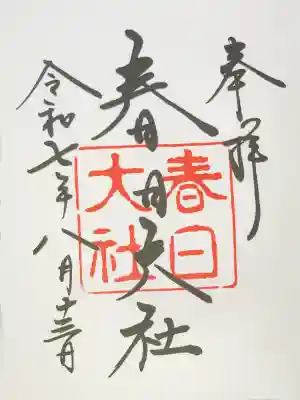 奉拝
春日大社
春日大社
令和七年八月十三日